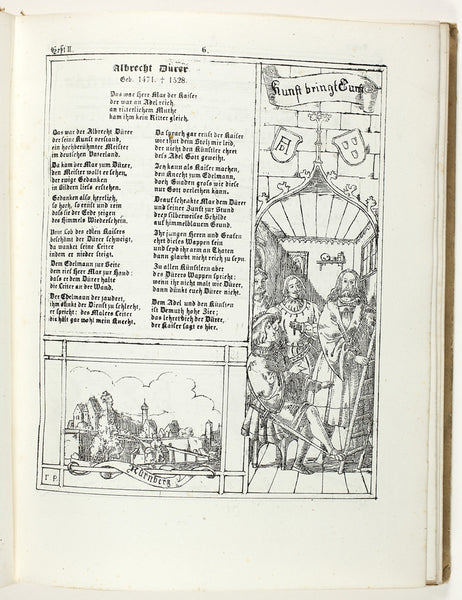 Heft II.
6.
Albrecht Dürer
Geb. 1471. † 1528.
Das war Herr Max der Kaiser
der war an Adel reich
an ritterlichem Muthe
kam ihm kein Ritter gleich.
Das war der Albrecht Dürer
der seine Kunst verstand,
ein hochberühmter Meister
im deutschen Vaterland.
Da kam der Max zum Dürer,
den Meister wollt er sehen,
der ewige Gedanken
in Bildern liess erstehen.
Gedanken also herrlich,
so hoch, so ernst und rein
dass sie der Erde zeigen
des Himmels Wiederschein.
Vom Lob des edlen Kaisers
beschämt der Dürer schweigt,
da wanket seine Leiter
indem er nieder steigt.
Dem Edelmann zur Seite
dem rief Herr Max zur Hand:
dass er dem Dürer halte
die Leiter an der Wand.
Der Edelmann der zaudert,
ihm dünkt der Dienst zu schlecht,
er spricht: des Malers Leiter
die hält gar wohl mein Knecht.
Da sprach gar ernst der Kaiser
wie thut dein Stolz mir leid,
der nicht den Künstler ehret
dess Adel Gott geweiht.
Ich kann als Kaiser machen,
den Knecht zum Edelmann,
doch Gnaden gross wie diese
nur Gott verleihen kann.
Drauf schenkte Max dem Dürer
und seiner Zunft zur Stund
drey silberweisse Schilde
auf himmelblauem Grund.
Ihr jungen Herren und Grafen
ehrt dieses Wappen fein
und seyd ihr arm an Thaten
dann glaubt nicht reich zu seyn.
Zu allen Künstlern aber
des Dürers Wappen spricht:
wenn ihr nicht malt wie Dürer,
dann dünkt euch Dürer nicht.
Dem Adel und den Künsten
ist Demuth hohe Zier;
das lehret dich der Dürer,
der Kaiser sagt es hier.
Kunst bringt Gunst
Nürnberg
F. P.